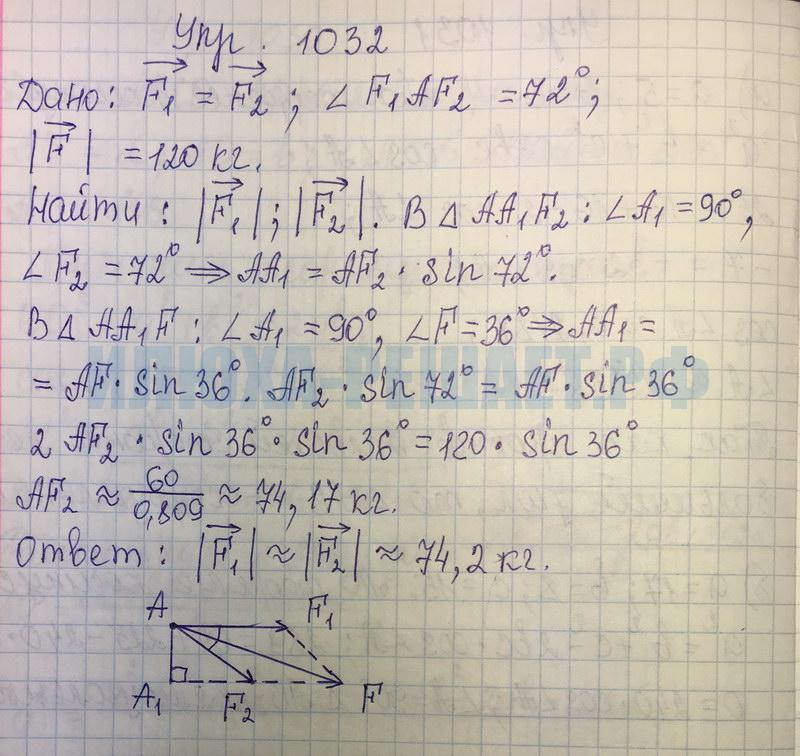 Упр. 1032
Дано: F₁ = F₂; ∠ F₁AF₂ = 72°;
|F| = 120 кг.
Найти: |F₁|; |F₂|. В Δ AA₁F₂: ∠A₁ = 90°,
∠F₂ = 72° ⇒ AA₁ = AF₂ · sin 72°.
В Δ AA₁F: ∠A₁ = 90°, ∠F = 36° ⇒ AA₁ =
= AF · sin 36°. AF₂ · sin 72° = AF · sin 36°
2 AF₂ · sin 36° · sin 36° = 120 · sin 36°
AF₂ ≈ 60/0,809 ≈ 74,17 кг.
Ответ: |F₁| ≈ |F₂| ≈ 74,2 кг.
A F₁
A₁ F₂ F
ИЛЮХА-РЕШАЕТ.РФ